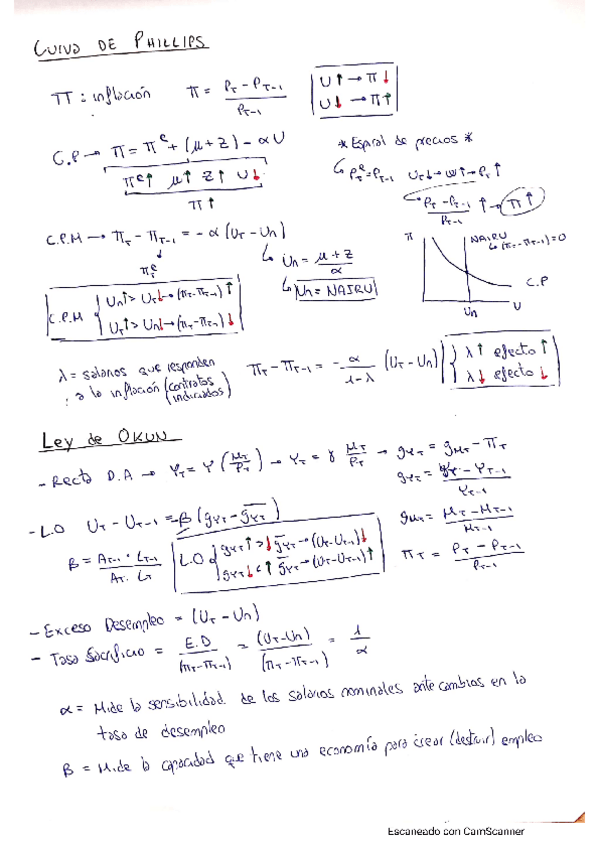 CURVA DE PHILLIPS
π : inflación π = (P_T - P_T-1) / P_T-1
U↑ → π↓
U↓ → π↑
C.P → π = π^e + (μ + z) - αU
π^e↑ μ↑ z↑ U↓
π↑
* Espiral de precios *
P_T^e = P_T-1 U_T↓ → W↑ → P_T↑
(P_T - P_T-1) / P_T-1 ↑ → π↑
C.P.M → π_T - π_T-1 = - α (U_T - U_n)
π_T^e
U_n = (μ + z) / α
U_n = NAIRU
π
NAIRU
↳ (π_T - π_T-1) = 0
C.P
U_n U
C.P.M
U_n↑ > U_T↓ → (π_T - π_T-1)↑
U_T↑ > U_n↓ → (π_T - π_T-1)↓
λ = salarios que responden
a la inflación (contratos
indiciados)
π_T - π_T-1 = - α / (1 - λ) (U_T - U_n)
λ↑ efecto↑
λ↓ efecto↓
Ley de OKUN
- Recta D.A → Y_T = Y (M_T / P_T) → Y_T = γ M_T / P_T → g_YT = g_MT - π_T
g_YT = (Y_T - Y_T-1) / Y_T-1
- L.O U_T - U_T-1 = -β (g_YT - g̅_YT)
g_MT = (M_T - M_T-1) / M_T-1
β = (A_T-1 · L_T-1) / (A_T · L_T)
L.O
g_YT↑ > ↓g̅_YT → (U_T - U_T-1)↓
g_YT↓ < ↑g̅_YT → (U_T - U_T-1)↑
π_T = (P_T - P_T-1) / P_T-1
- Exceso Desempleo = (U_T - U_n)
- Tasa Sacrificio = E.D / (π_T - π_T-1) = (U_T - U_n) / (π_T - π_T-1) = 1 / α
α = Mide la sensibilidad de los salarios nominales ante cambios en la
tasa de desempleo
β = Mide la capacidad que tiene una economía para crear (destruir) empleo
Escaneado con CamScanner